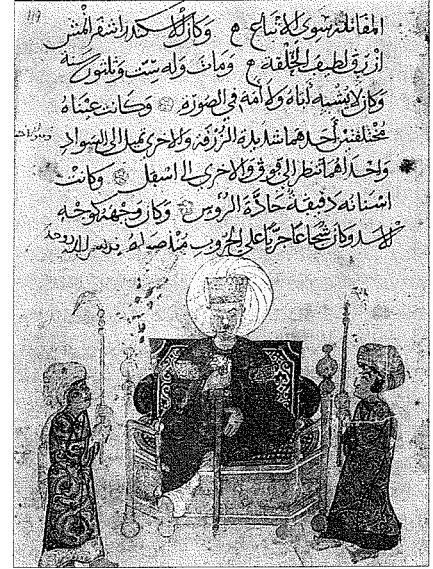 119
المقاتلة سوى الاتباع ه وكان الاسكندر اشقر انمش
ازرق لطيف الخلقة ه ومات وله ست وثلثون سنة
وكان لا يشبه اباه ولا امه في الصورة وكانت عيناه
مختلفتين احدهما شديدة الزرقة والاخرى تميل الى السواد
واحداهما تنظر الى فوق والاخرى الى اسفل وكانت
اسنانه دقيقة حادة الروس وكان وجهه كوجه
الاسد وكان شجاعا جريا على الحروب منذ صباه